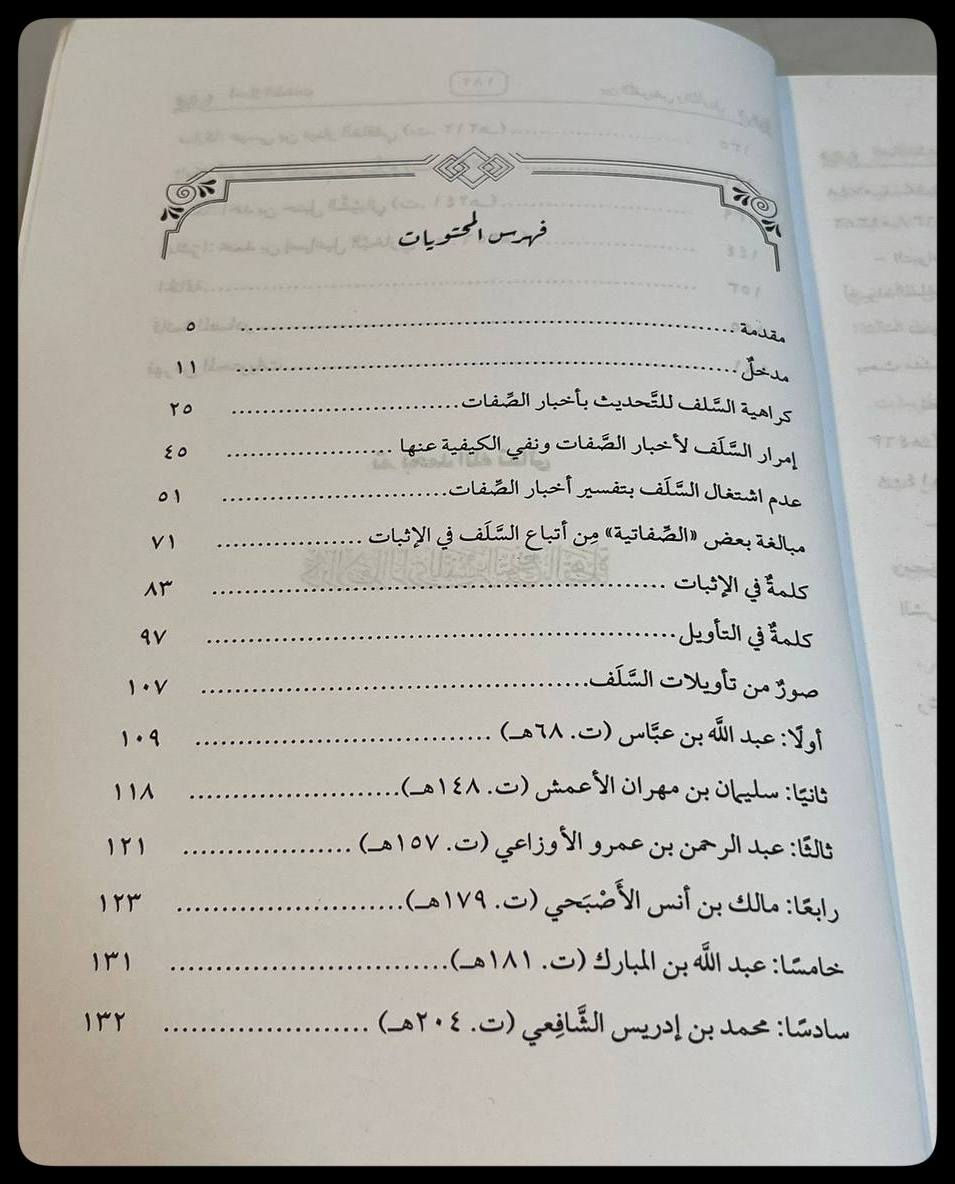 فهرس المحتويات
مقدمة ........ ٥
مدخلٌ ........ ١١
كراهية السَّلف للتَّحديث بأخبار الصِّفات ........ ٢٥
إمرار السَّلَف لأخبار الصَّفات ونفي الكيفية عنها ........ ٤٥
عدم اشتغال السَّلَف بتفسير أخبار الصِّفات ........ ٥١
مبالغة بعض «الصِّفاتية» مِن أتباع السَّلَف في الإثبات ........ ٧١
كلمةٌ في الإثبات ........ ٨٣
كلمةٌ في التأويل ........ ٩٧
صورٌ من تأويلات السَّلَف ........ ١٠٧
أولًا: عبد اللَّه بن عبَّاس (ت. ٦٨هـ) ........ ١٠٩
ثانيًا: سليمان بن مهران الأعمش (ت. ١٤٨هـ) ........ ١١٨
ثالثًا: عبد الرحمن بن عمرو الأوزاعي (ت. ١٥٧هـ) ........ ١٢١
رابعًا: مالك بن أنس الأَصْبَحي (ت. ١٧٩هـ) ........ ١٢٣
خامسًا: عبد اللَّه بن المبارك (ت. ١٨١هـ) ........ ١٣١
سادسًا: محمد بن إدريس الشَّافِعي (ت. ٢٠٤هـ) ........ ١٣٢